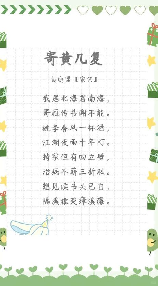 寄黄几复
黄庭坚【宋代】
我居北海君南海，
寄雁传书谢不能。
桃李春风一杯酒，
江湖夜雨十年灯。
持家但有四立壁，
治病不蕲三折肱。
想见读书头已白，
隔溪猿哭瘴溪藤。